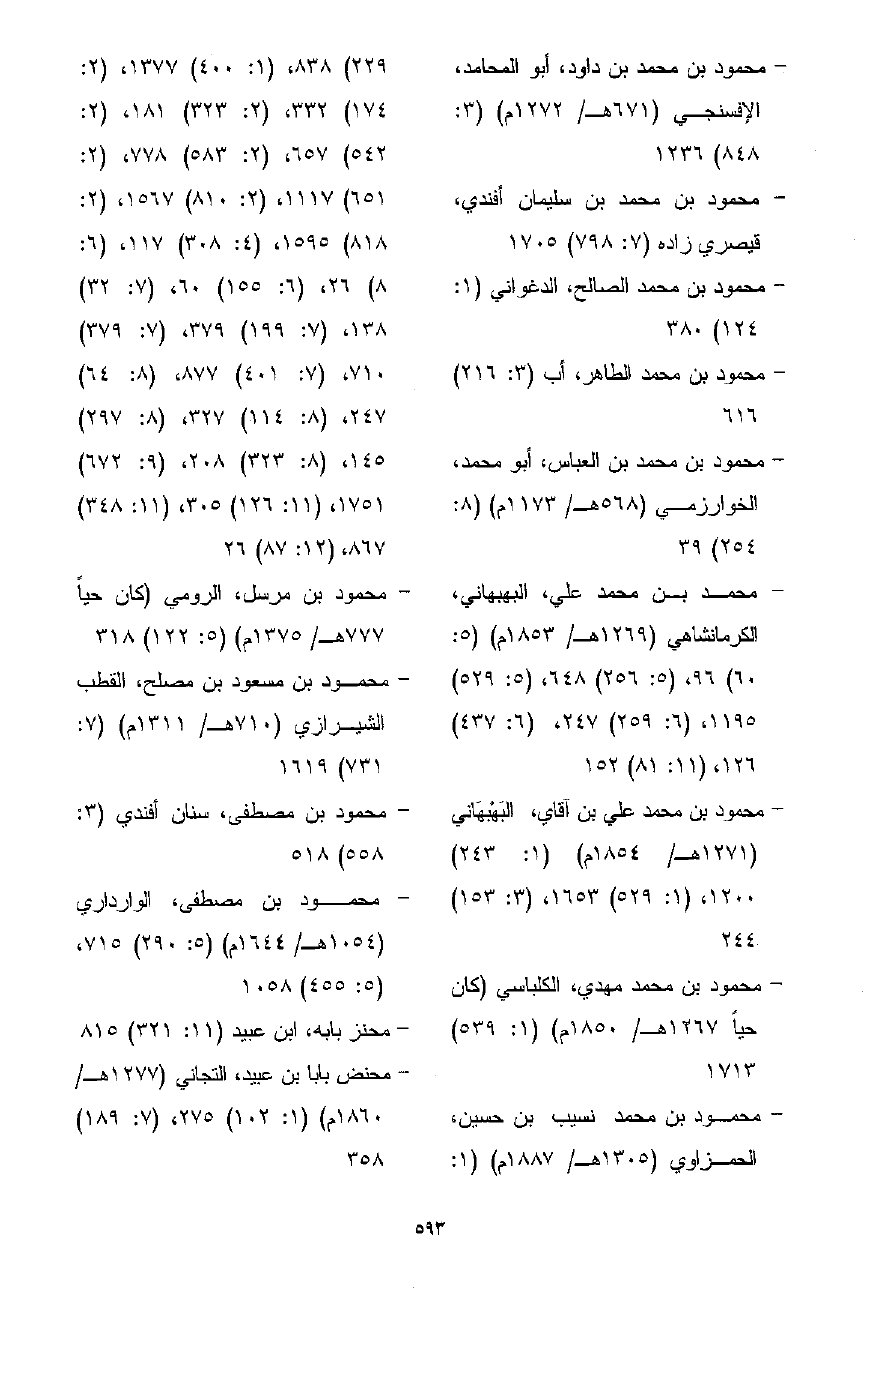 – محمود بن محمد بن داود، أبو المحامد،
الإفسنجي (٦٧١هـ/ ١٢٧٢م) (٣:
٨٤٨) ١٢٣٦
– محمود بن محمد بن سليمان أفندي،
قيصري زاده (٧: ٧٩٨) ١٧٠٥
– محمود بن محمد الصالح، الدغواني (١:
١٢٤) ٣٨٠
– محمود بن محمد الطاهر، أب (٣: ٢١٦)
٦١٦
– محمود بن محمد بن العباس، أبو محمد،
الخوارزمي (٥٦٨هـ/ ١١٧٣م) (٨:
٢٥٤) ٣٩
– محمد بن محمد علي، البهبهاني،
الكرمانشاهي (١٢٦٩هـ/ ١٨٥٣م) (٥:
٦٠) ٩٦، (٥: ٢٥٦) ٦٤٨، (٥: ٥٢٩)
١١٩٥، (٦: ٢٥٩) ٢٤٧، (٦: ٤٣٧)
١٢٦، (١١: ٨١) ١٥٢
– محمود بن محمد علي بن آقاي، البَهْبَهَاني
(١٢٧١هـ/ ١٨٥٤م) (١: ٢٤٣)
١٢٠٠، (١: ٥٢٩) ١٦٥٣، (٣: ١٥٣)
٢٤٤
– محمود بن محمد مهدي، الكلباسي (كان
حياً ١٢٦٧هـ/ ١٨٥٠م) (١: ٥٣٩)
١٧١٣
– محمود بن محمد نسيب بن حسين،
الحمزاوي (١٣٠٥هـ/ ١٨٨٧م) (١:
٢٢٩) ٨٣٨، (١: ٤٠٠) ١٣٧٧، (٢:
١٧٤) ٣٣٢، (٢: ٣٢٣) ١٨١، (٢:
٥٤٢) ٦٥٧، (٢: ٥٨٣) ٧٧٨، (٢:
٦٥١) ١١١٧، (٢: ٨١٠) ١٥٦٧، (٢:
٨١٨) ١٥٩٥، (٤: ٣٠٨) ١١٧، (٦:
٨) ٢٦، (٦: ١٥٥) ٦٠، (٧: ٣٢)
١٣٨، (٧: ١٩٩) ٣٧٩، (٧: ٣٧٩)
٧١٠، (٧: ٤٠١) ٨٧٧، (٨: ٦٤)
٢٤٧، (٨: ١١٤) ٣٢٧، (٨: ٢٩٧)
١٤٥، (٨: ٣٢٣) ٢٠٨، (٩: ٦٧٢)
١٧٥١، (١١: ١٢٦) ٣٠٥، (١١: ٣٤٨)
٨٦٧، (١٢: ٨٧) ٢٦
– محمود بن مرسل، الرومي (كان حياً
٧٧٧هـ/ ١٣٧٥م) (٥: ١٢٢) ٣١٨
– محمود بن مسعود بن مصلح، القطب
الشيرازي (٧١٠هـ/ ١٣١١م) (٧:
٧٣١) ١٦١٩
– محمود بن مصطفى، سنان أفندي (٣:
٥٥٨) ٥١٨
– محمود بن مصطفى، الوارداري
(١٠٥٤هـ/ ١٦٤٤م) (٥: ٢٩٠) ٧١٥،
(٥: ٤٥٥) ١٠٥٨
– محنز بابه، ابن عبيد (١١: ٣٢١) ٨١٥
– محنض بابا بن عبيد، التجاني (١٢٧٧هـ/
١٨٦٠م) (١: ١٠٢) ٢٧٥، (٧: ١٨٩)
٣٥٨
٥٩٣